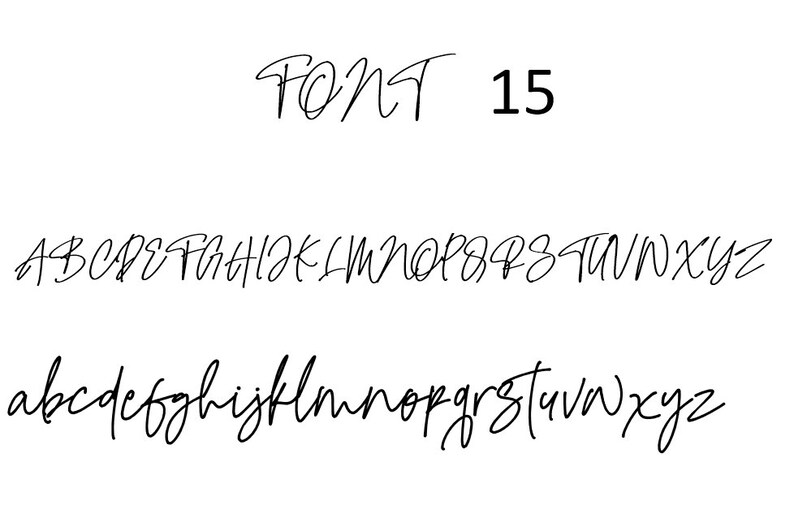 FONT 15
ABCDEFGHIJKLMNOPQRSTUVWXYZ
abcdefghijklmnopqrstuvwxyz